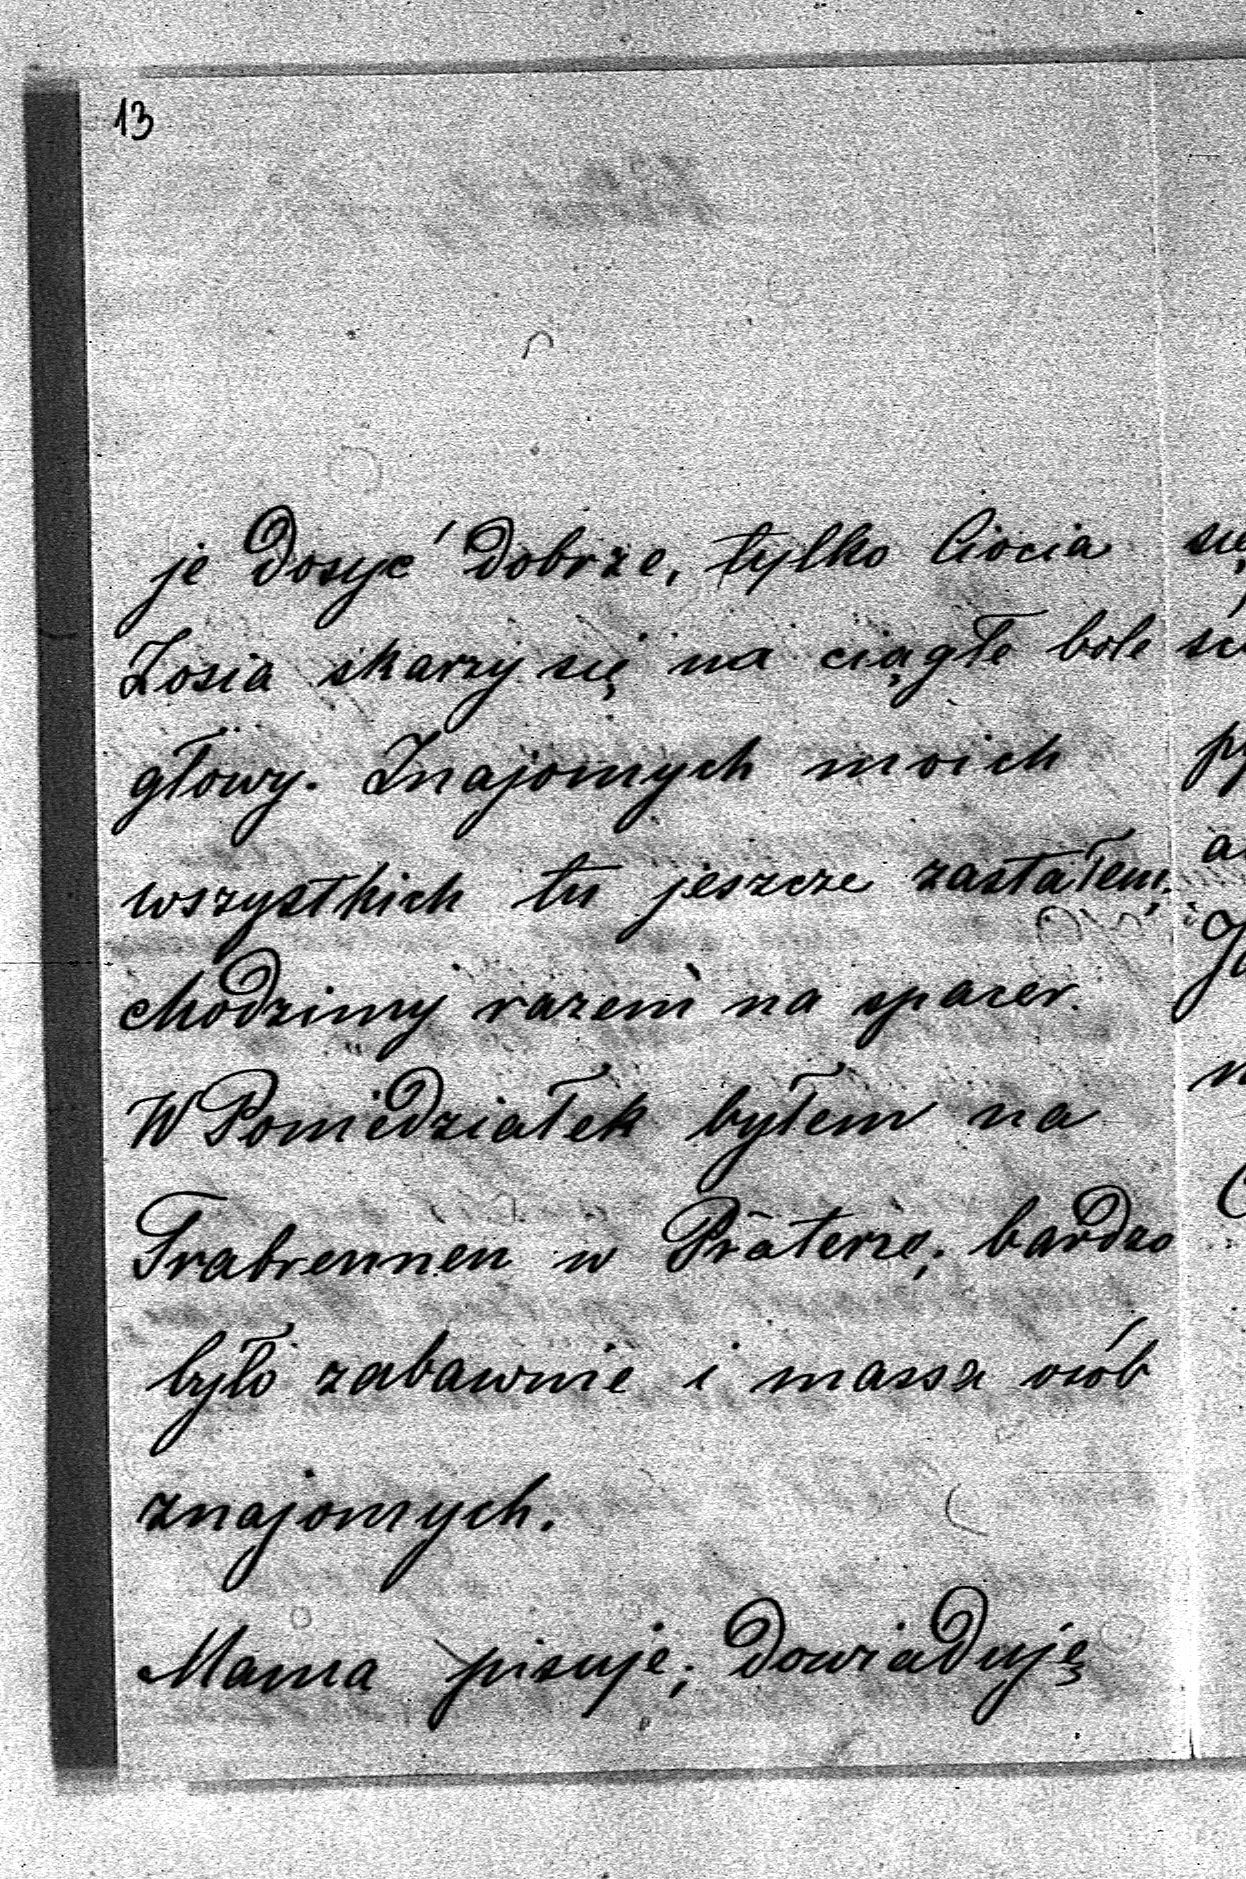 13
je dosyć dobrze, tylko Ciocia
Zosia skarzy się na ciągłe bole
głowy. Znajomych moich
wszystkich tu jeszcze zastałem;
chodzimy razem na spacer.
W Poniedziałek byłem na
Trabrennen w Praterze; bardzo
było zabawnie i massa osób
znajomych.
Mama pisuje; dowiaduję
się